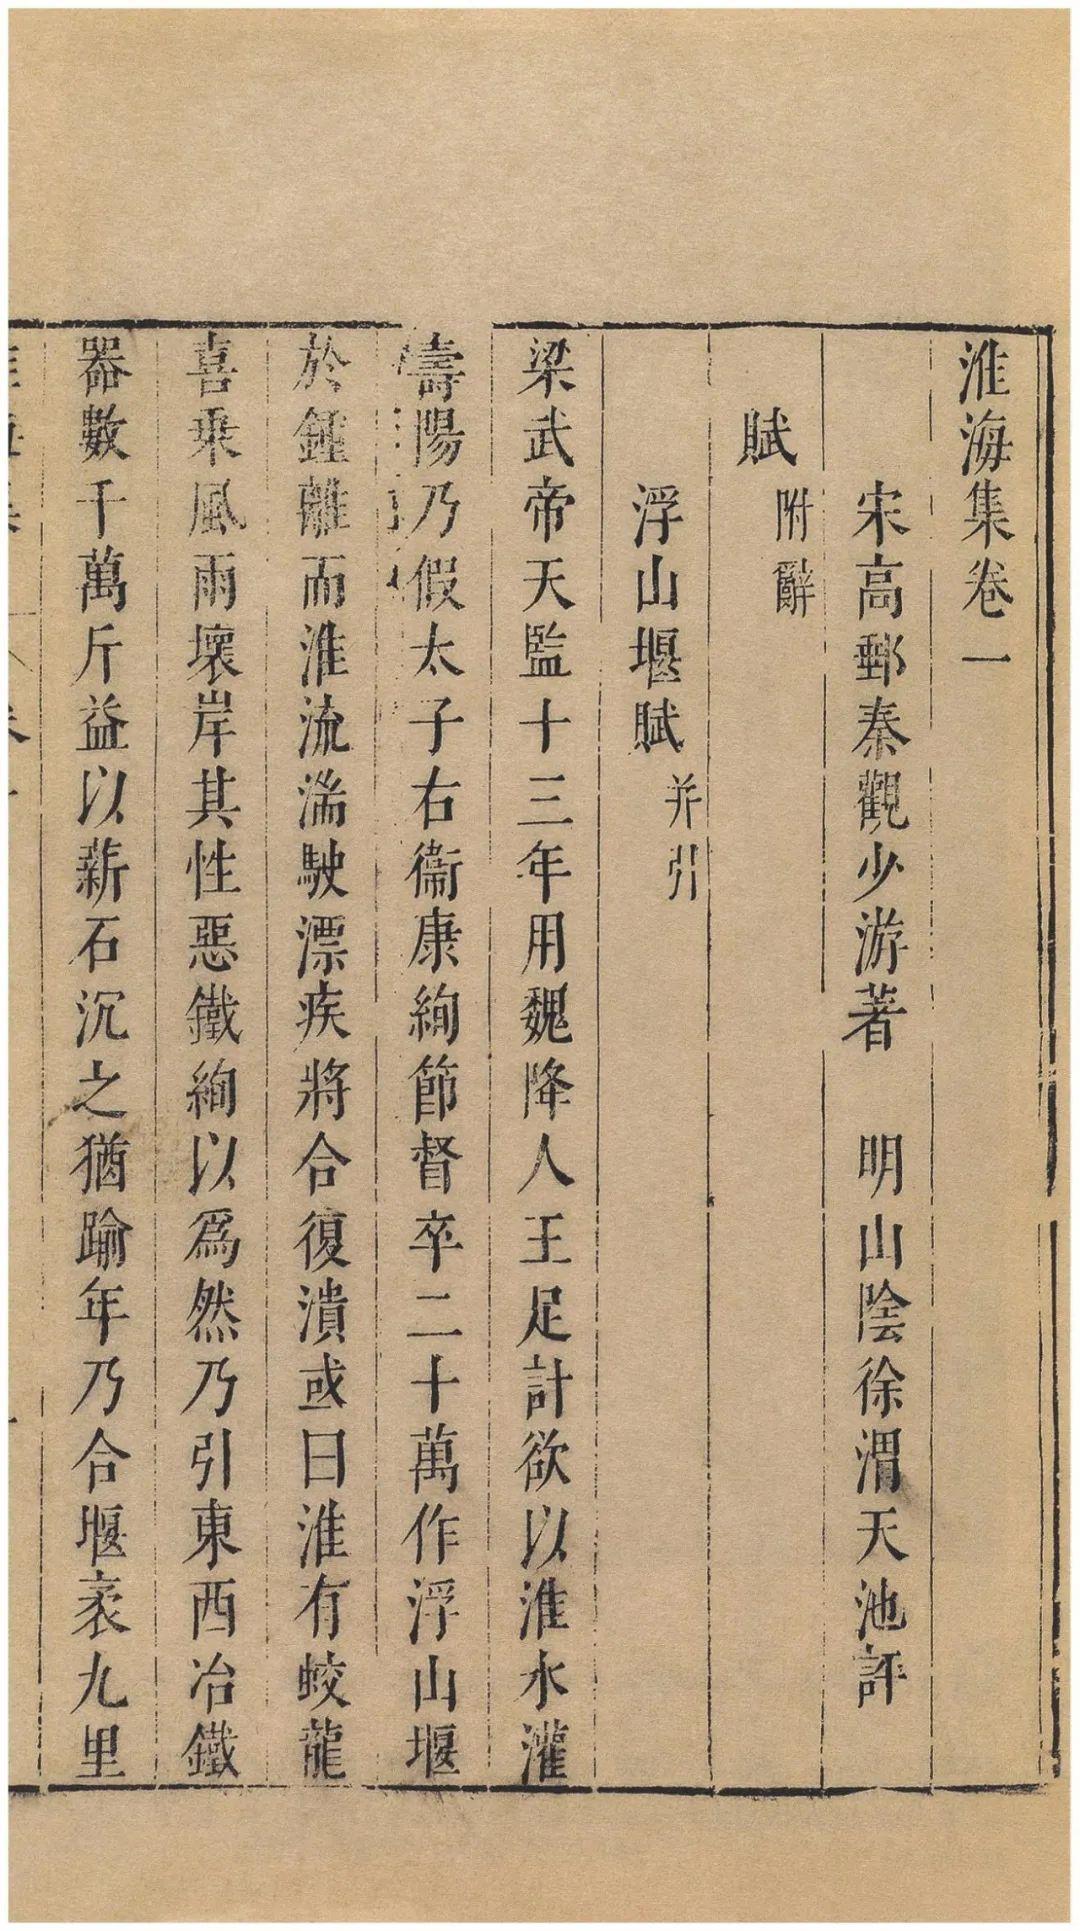 淮海集卷一
宋高郵秦觀少游著　明山陰徐渭天池評
賦附辭
浮山堰賦并引
梁武帝天監十三年用魏降人王足計欲以淮水灌
壽陽乃假太子右衞康絢節督卒二十萬作浮山堰
於鍾離而淮流湍駛漂疾將合復潰或曰淮有蛟龍
喜乘風雨壞岸其性惡鐵絢以爲然乃引東西冶鐵
器數千萬斤益以薪石沉之猶踰年乃合堰袤九里